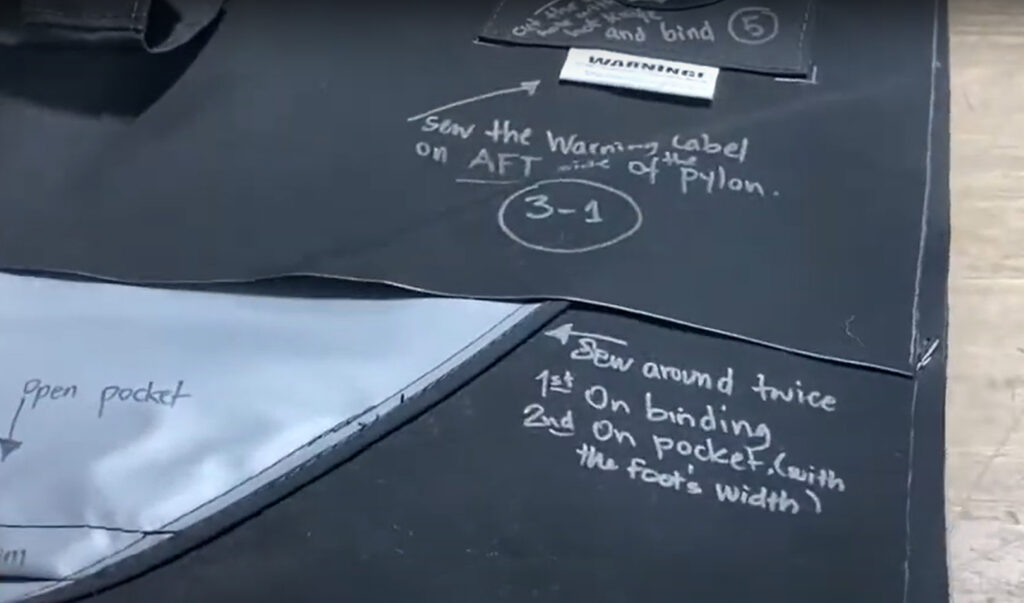 and bind 5
WARNING!
Sew the Warning Label
on AFT side of the pylon.
3-1
Open pocket
Sew around twice
1st On binding
2nd On pocket. (with
the foot's width)